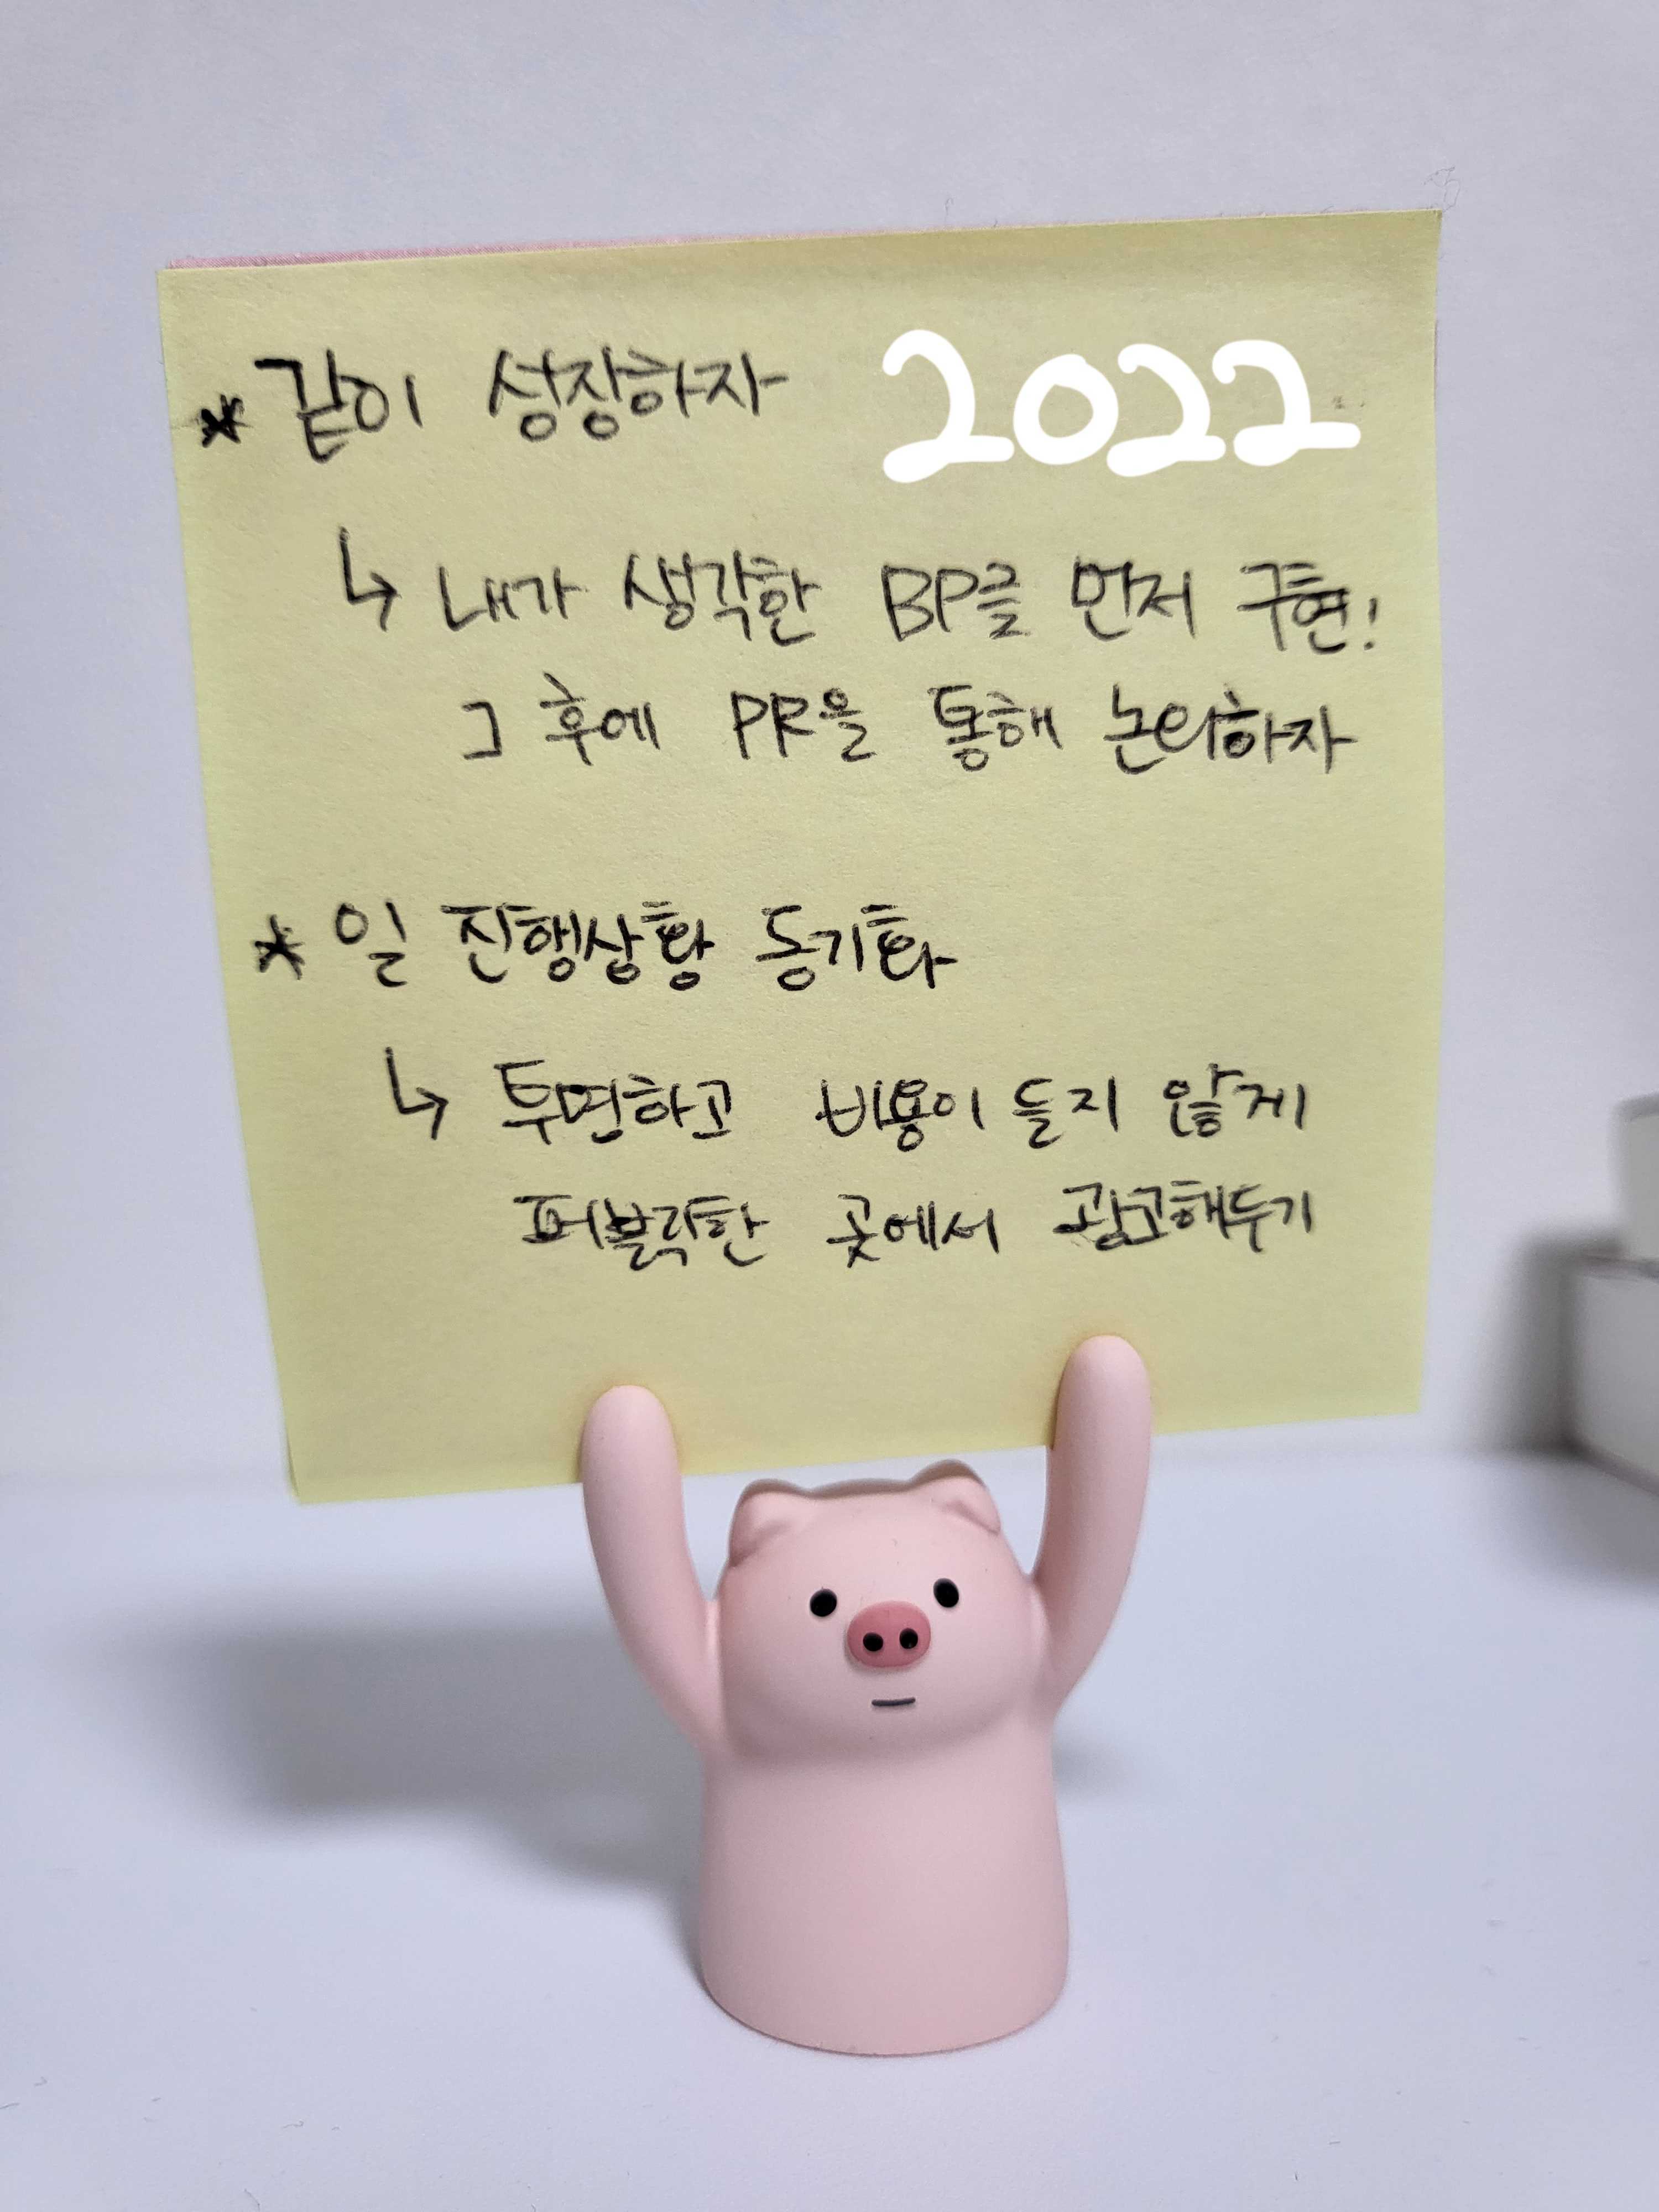 * 같이 성장하자 2022
↳ 내가 생각한 BP를 먼저 구현!
그 후에 PR을 통해 논의하자
* 일 진행상황 동기화
↳ 투명하고 비용이 들지 않게
퍼블릭한 곳에서 광고해두기